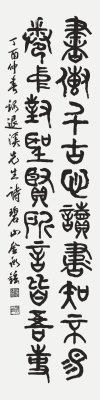 書傳千古心讀書知不易
卷中對聖賢所言皆吾事
丁酉仲春 錄退溪先生詩 碧山金